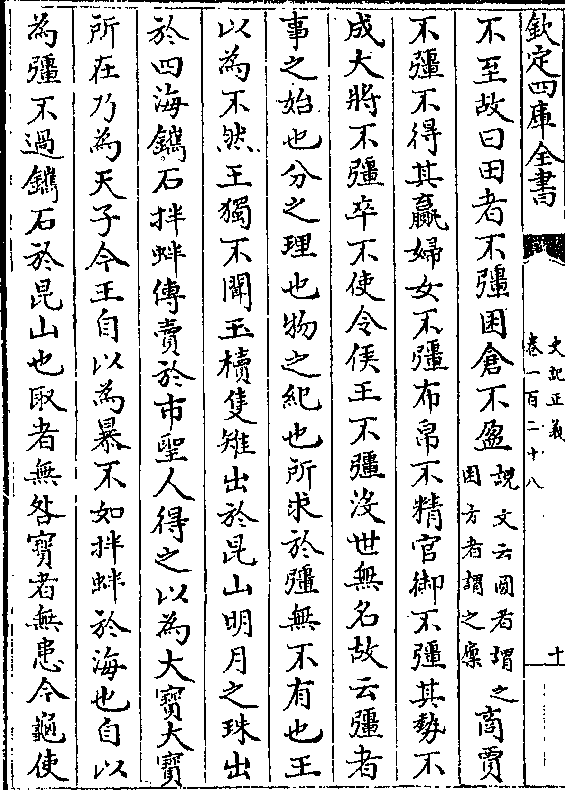 欽定四庫全書
史記正義
卷一百二十八
十
不至故曰田者不彊囷倉不盈說文云圓者謂之囷方者謂之廩商賈
不彊不得其贏婦女不彊布帛不精官御不彊其勢不
成大將不彊卒不使令侯王不彊沒世無名故云彊者
事之始也分之理也物之紀也所求於彊無不有也王
以為不然王獨不聞玉櫝隻雉出於昆山明月之珠出
於四海鐫石拌蚌傳賣於市聖人得之以為大寶大寶
所在乃為天子今王自以為暴不如拌蚌於海也自以
為彊不過鐫石於昆山也取者無咎寶者無患今龜使